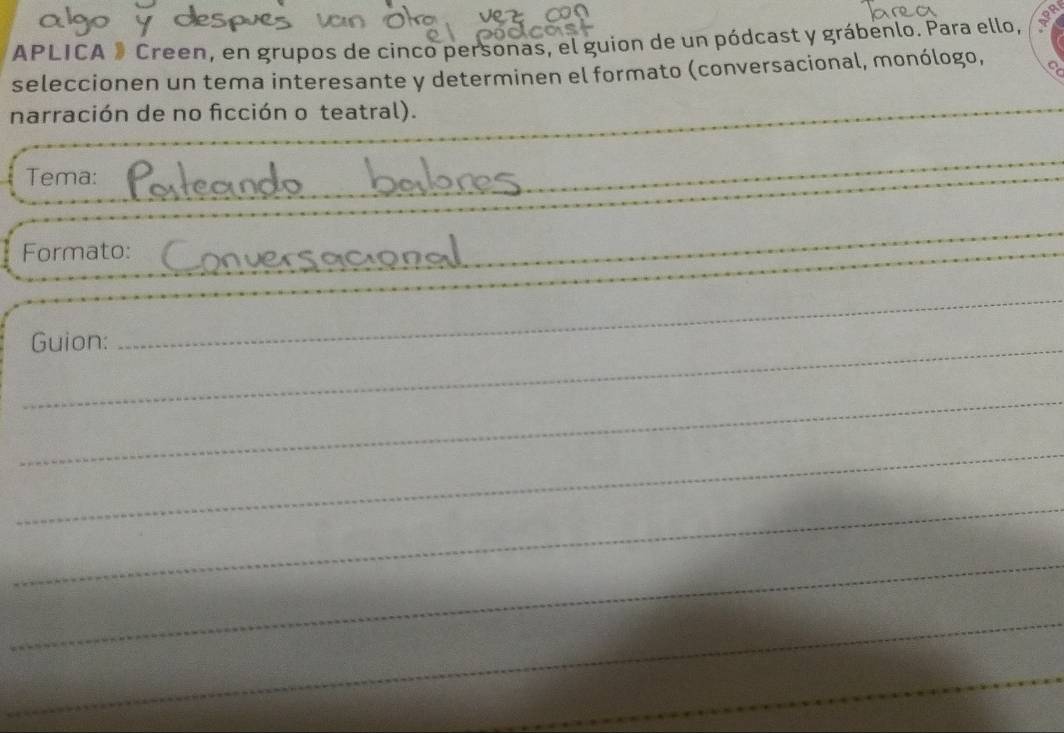 algo y despues van otra vez con Tarea
el podcast
APLICA » Creen, en grupos de cinco personas, el guion de un pódcast y grábenlo. Para ello,
seleccionen un tema interesante y determinen el formato (conversacional, monólogo,
narración de no ficción o teatral).
Tema: Pateando balores
Formato: Conversacional
Guion: